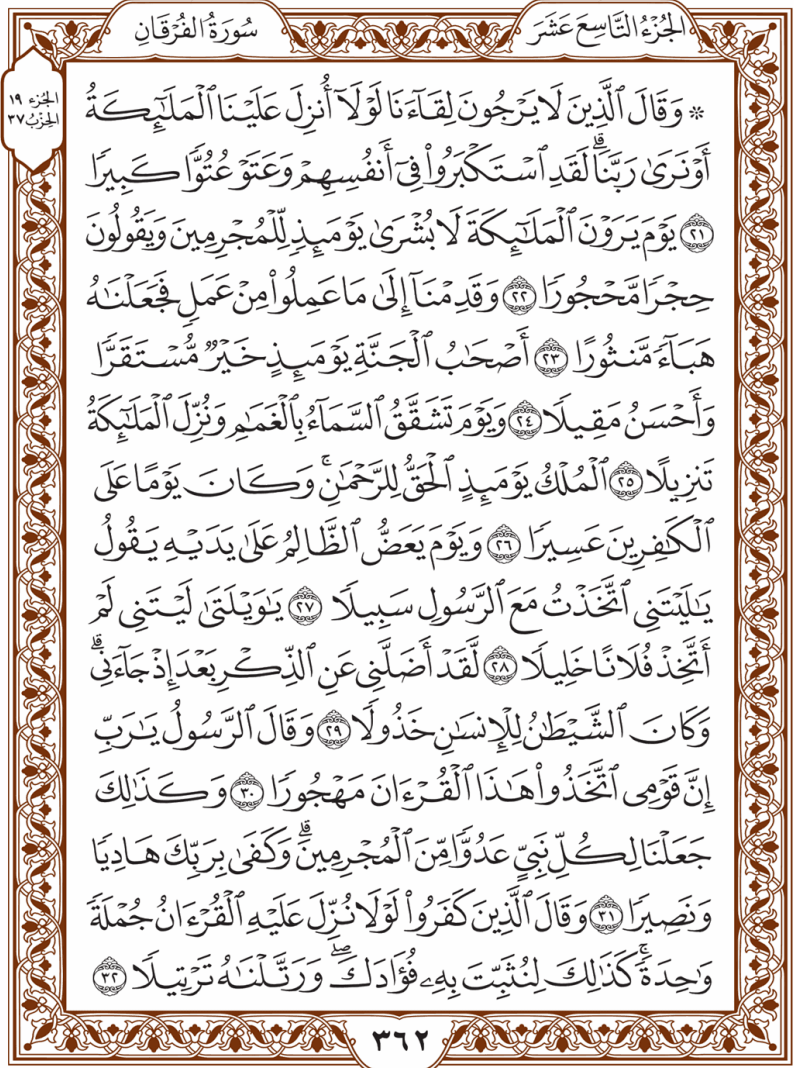 الجُزْءُ التَّاسِعَ عَشَرَ
سُورَةُ الفُرْقَانِ
الجُزء ١٩
الحِزْبُ ٣٧
۞ وَقَالَ ٱلَّذِينَ لَا يَرْجُونَ لِقَآءَنَا لَوْلَآ أُنزِلَ عَلَيْنَا ٱلْمَلَٰٓئِكَةُ
أَوْ نَرَىٰ رَبَّنَاۗ لَقَدِ ٱسْتَكْبَرُوا۟ فِىٓ أَنفُسِهِمْ وَعَتَوْ عُتُوًّا كَبِيرًا
٢١ يَوْمَ يَرَوْنَ ٱلْمَلَٰٓئِكَةَ لَا بُشْرَىٰ يَوْمَئِذٍ لِّلْمُجْرِمِينَ وَيَقُولُونَ
حِجْرًا مَّحْجُورًا ٢٢ وَقَدِمْنَآ إِلَىٰ مَا عَمِلُوا۟ مِنْ عَمَلٍ فَجَعَلْنَٰهُ
هَبَآءً مَّنثُورًا ٢٣ أَصْحَٰبُ ٱلْجَنَّةِ يَوْمَئِذٍ خَيْرٌ مُّسْتَقَرًّا
وَأَحْسَنُ مَقِيلًا ٢٤ وَيَوْمَ تَشَقَّقُ ٱلسَّمَآءُ بِٱلْغَمَٰمِ وَنُزِّلَ ٱلْمَلَٰٓئِكَةُ
تَنزِيلًا ٢٥ ٱلْمُلْكُ يَوْمَئِذٍ ٱلْحَقُّ لِلرَّحْمَٰنِۚ وَكَانَ يَوْمًا عَلَى
ٱلْكَٰفِرِينَ عَسِيرًا ٢٦ وَيَوْمَ يَعَضُّ ٱلظَّالِمُ عَلَىٰ يَدَيْهِ يَقُولُ
يَٰلَيْتَنِى ٱتَّخَذْتُ مَعَ ٱلرَّسُولِ سَبِيلًا ٢٧ يَٰوَيْلَتَىٰ لَيْتَنِى لَمْ
أَتَّخِذْ فُلَانًا خَلِيلًا ٢٨ لَّقَدْ أَضَلَّنِى عَنِ ٱلذِّكْرِ بَعْدَ إِذْ جَآءَنِىۗ
وَكَانَ ٱلشَّيْطَٰنُ لِلْإِنسَٰنِ خَذُولًا ٢٩ وَقَالَ ٱلرَّسُولُ يَٰرَبِّ
إِنَّ قَوْمِى ٱتَّخَذُوا۟ هَٰذَا ٱلْقُرْءَانَ مَهْجُورًا ٣٠ وَكَذَٰلِكَ
جَعَلْنَا لِكُلِّ نَبِىٍّ عَدُوًّا مِّنَ ٱلْمُجْرِمِينَۗ وَكَفَىٰ بِرَبِّكَ هَادِيًا
وَنَصِيرًا ٣١ وَقَالَ ٱلَّذِينَ كَفَرُوا۟ لَوْلَا نُزِّلَ عَلَيْهِ ٱلْقُرْءَانُ جُمْلَةً
وَٰحِدَةًۚ كَذَٰلِكَ لِنُثَبِّتَ بِهِۦ فُؤَادَكَۖ وَرَتَّلْنَٰهُ تَرْتِيلًا ٣٢
٣٦٢